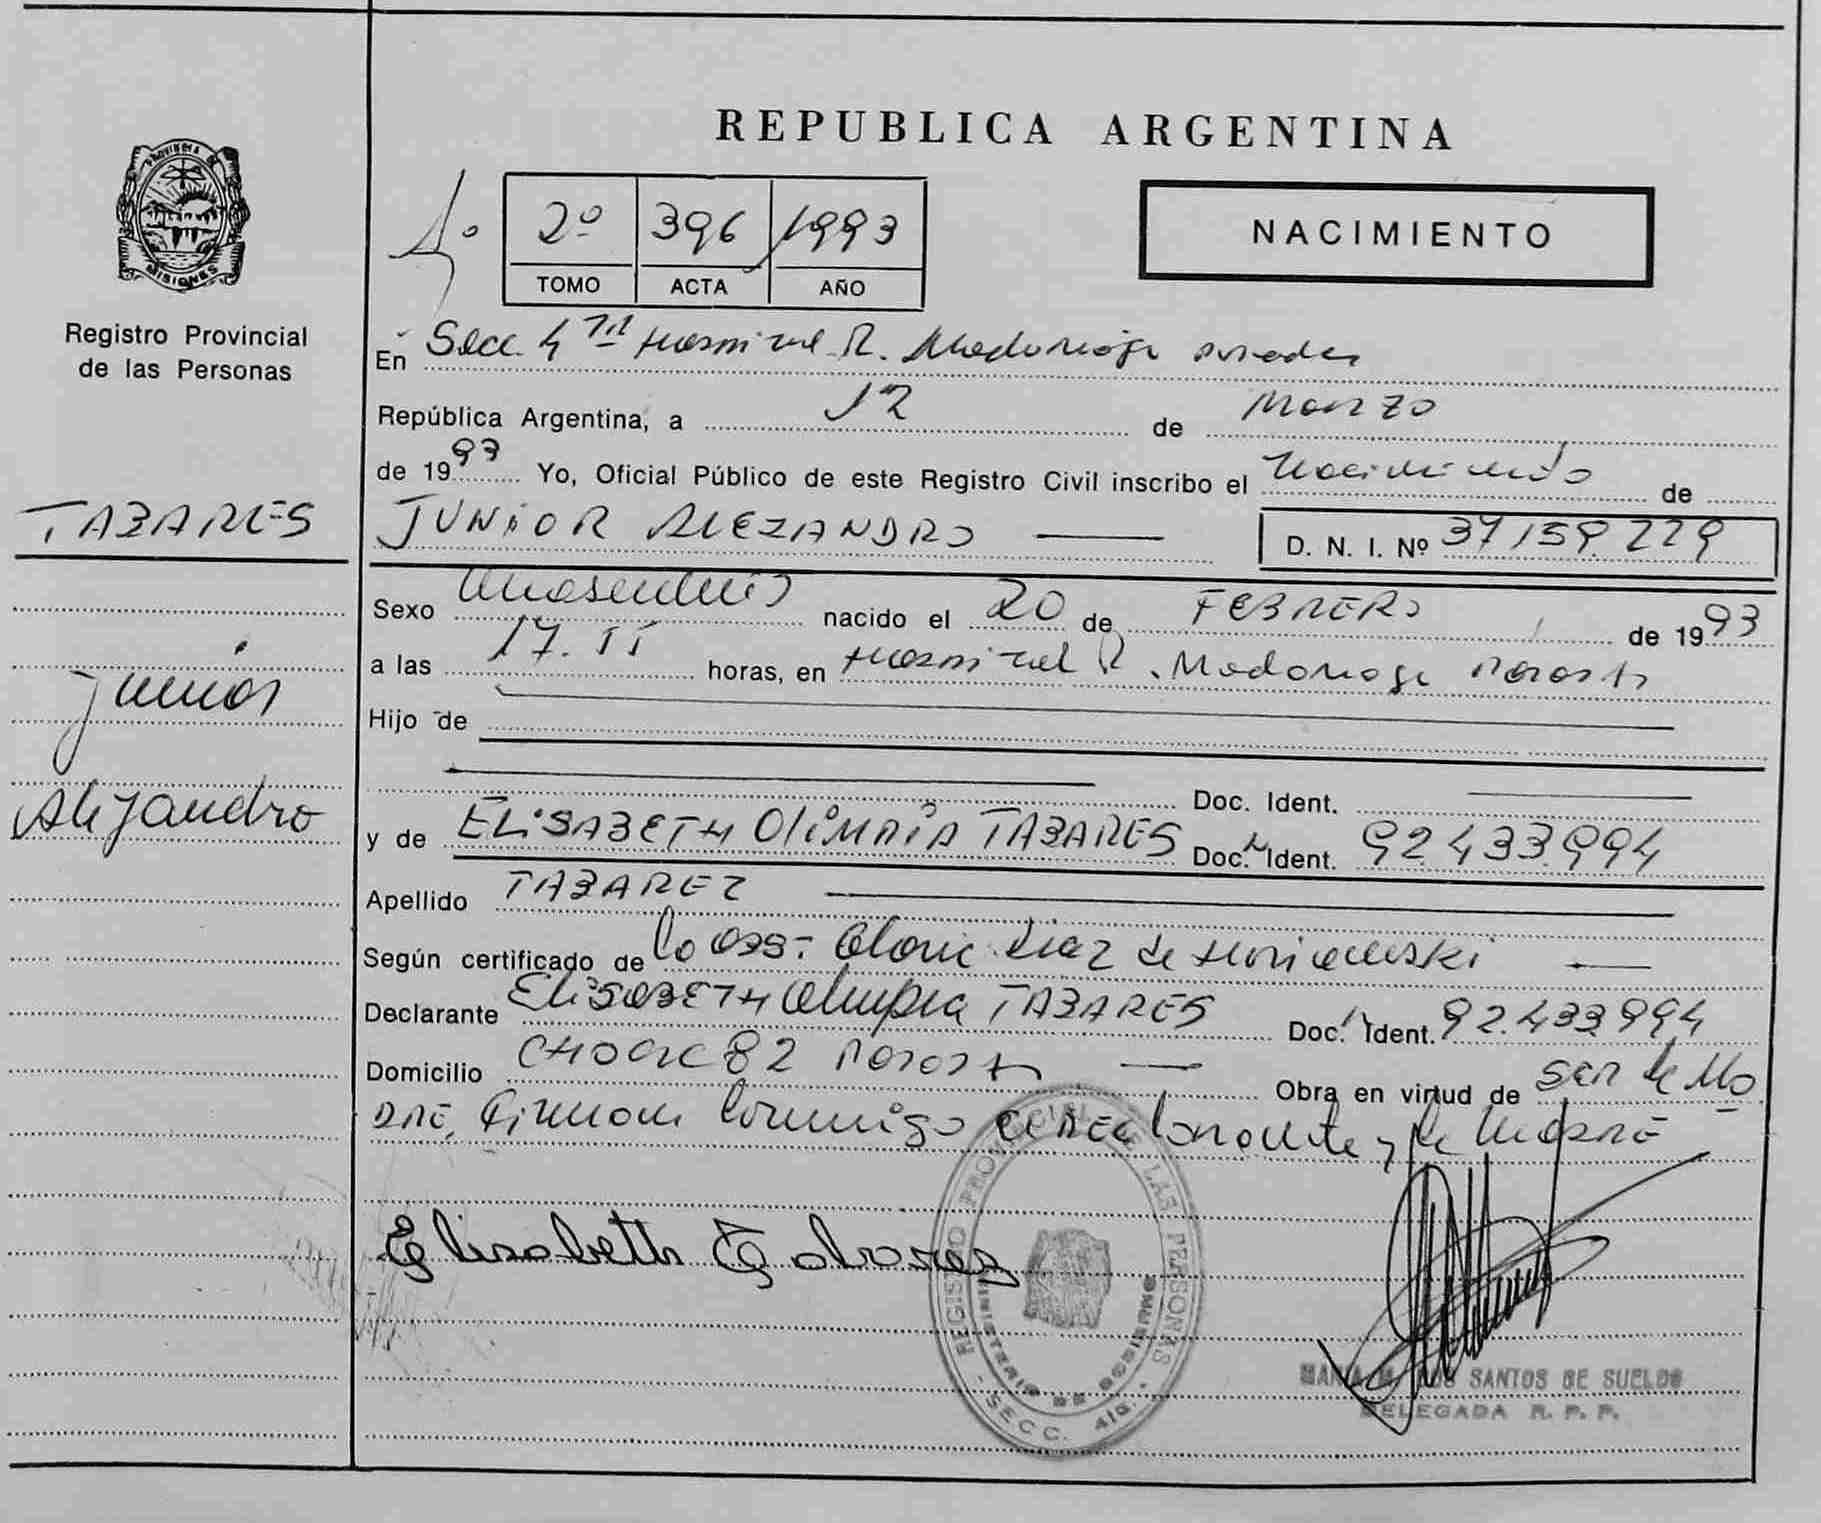 REPUBLICA ARGENTINA
PROVINCIA DE MISIONES
Registro Provincial
de las Personas
1º 2º 396 1993
TOMO ACTA AÑO
NACIMIENTO
En Secc. 4 Hospital R. Madariaga Posadas
República Argentina, a 12 de Marzo
de 1993 Yo, Oficial Público de este Registro Civil inscribo el Nacimiento de
TABARES
JUNIOR ALEJANDRO D. N. I. Nº 37.159.229
Sexo Masculino nacido el 20 de FEBRERO de 1993
a las 17. horas, en Hospital R. Madariaga Posadas
Junior
Hijo de
Doc. Ident.
Alejandro
y de ELISABETH OLIMPIA TABARES Doc. Ident. 92.433.994
Apellido TABAREZ
Según certificado de la Obs. Gloria Diaz de
Declarante ELISABETH Olimpia TABARES Doc. Ident. 92.433.994
Domicilio 82 Posadas Obra en virtud de ser la Ma
DRE, Firman conmigo el declarante y la Madre
Elisabeth Tabarez
REGISTRO PROVINCIAL DE LAS PERSONAS
MINISTERIO DE GOBIERNO
- SECC. 4ta. -
MARIA SANTOS DE SUELDS
DELEGADA R. P. P.